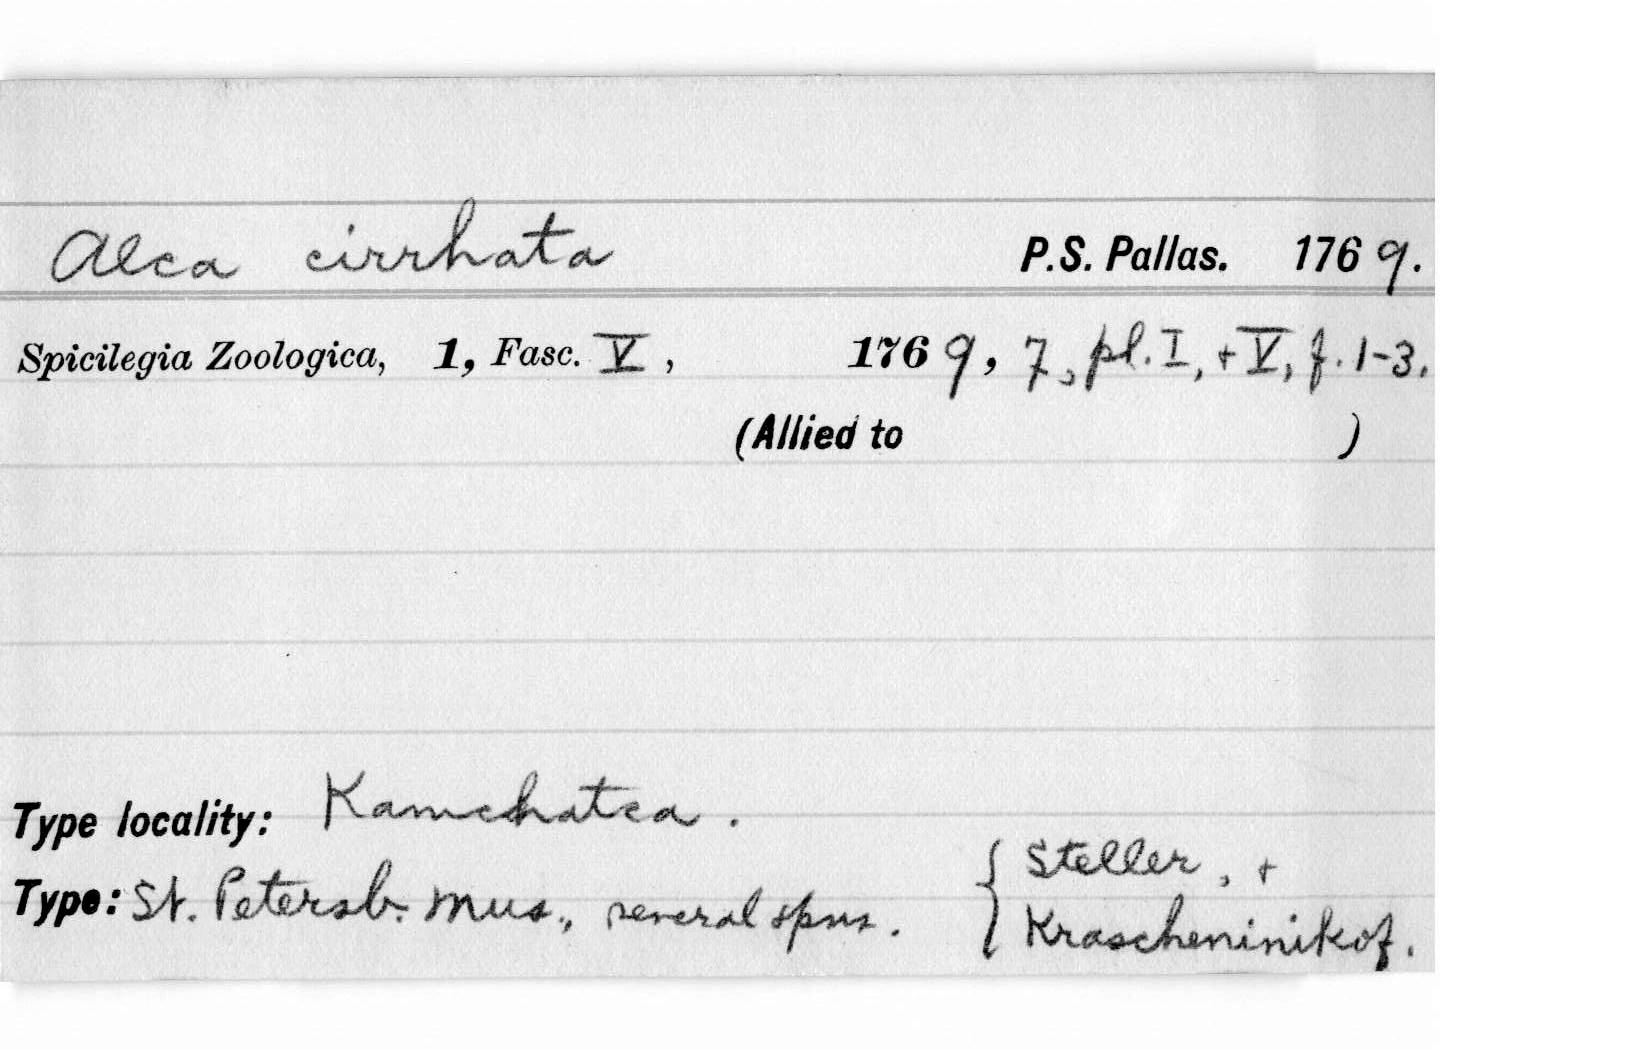 Alca cirrhata P.S. Pallas. 1769.
Spicilegia Zoologica, 1, Fasc. V, 1769, 7, pl. I, + V, f. 1-3.
(Allied to )
Type locality: Kamchatca.
Type: St. Petersb. Mus., several spms. { Steller, +
Krascheninikof.